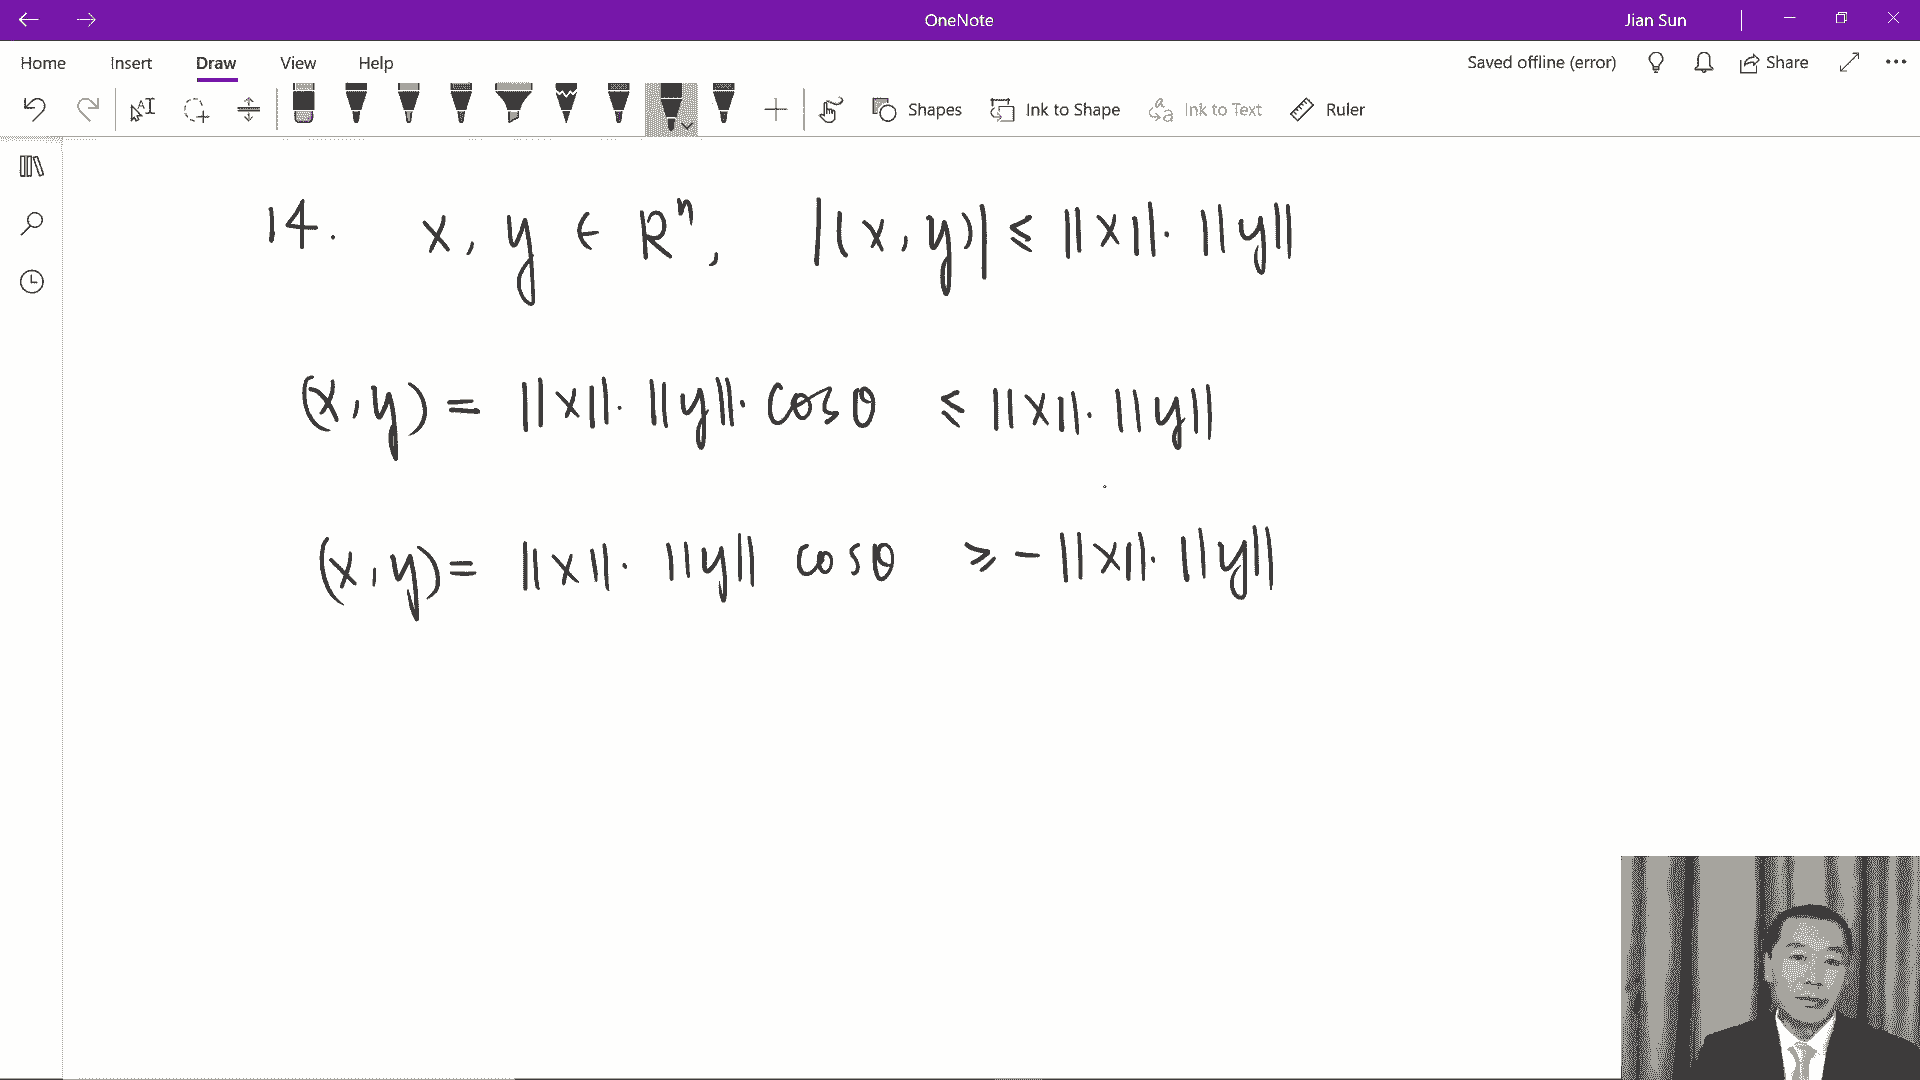 OneNote
Jian Sun
Home Insert Draw View Help
Saved offline (error) Share
Shapes Ink to Shape Ink to Text Ruler
14. x, y ∈ Rⁿ, |(x, y)| ≤ ||x||· ||y||
(x, y) = ||x||· ||y||· cosθ ≤ ||x||· ||y||
(x, y) = ||x||· ||y|| cosθ ≥ -||x||· ||y||